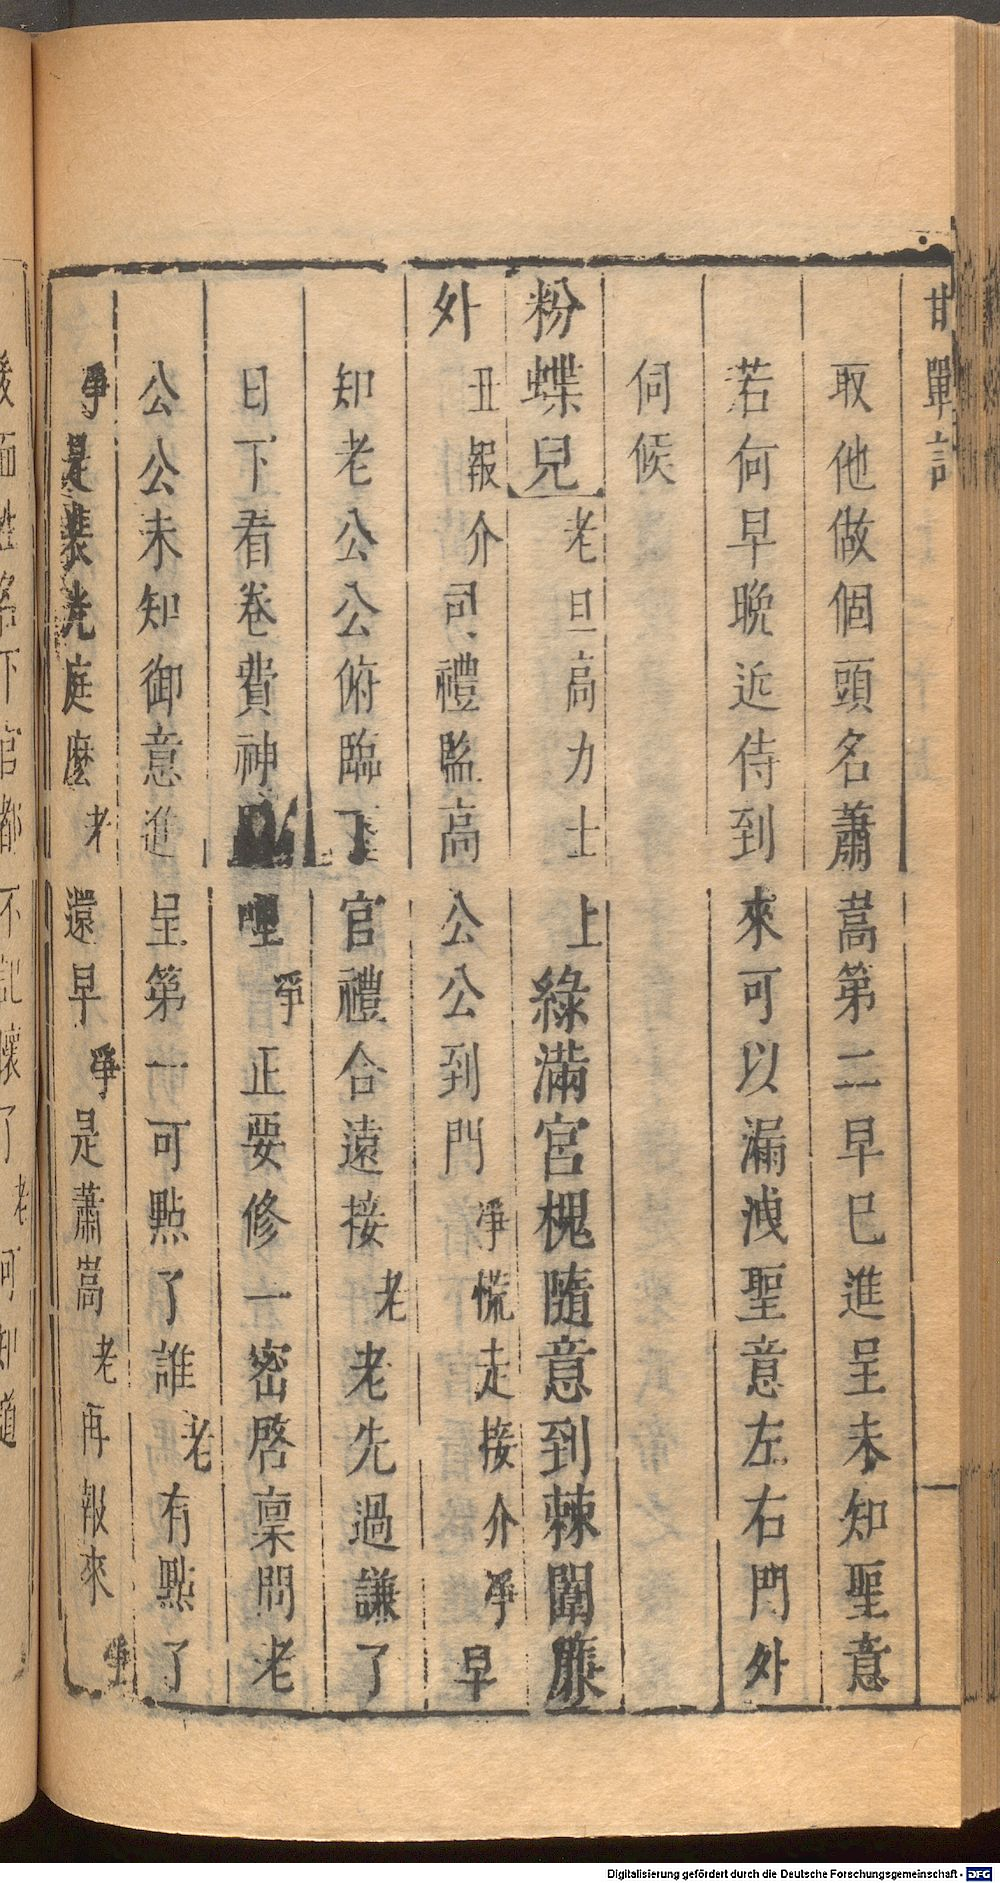 甘單記
取他做個頭名蕭嵩第二早已進呈未知聖意
若何早晚近侍到來可以漏洩聖意左右門外
伺候
粉蝶兒老旦高力士上綠滿宮槐隨意到棘闈簾
外丑報介司禮監高公公到門淨慌走接介淨早
知老公公俯臨下官禮合遠接老老先過謙了
日下看卷費神哩淨正要修一密啓稟問老
公公未知御意進呈第一可點了誰老有點了
淨是裴光庭麼老還早淨是蕭嵩老再報來淨
下官都不記懷了老可知道
Digitalisierung gefördert durch die Deutsche Forschungsgemeinschaft - DFG